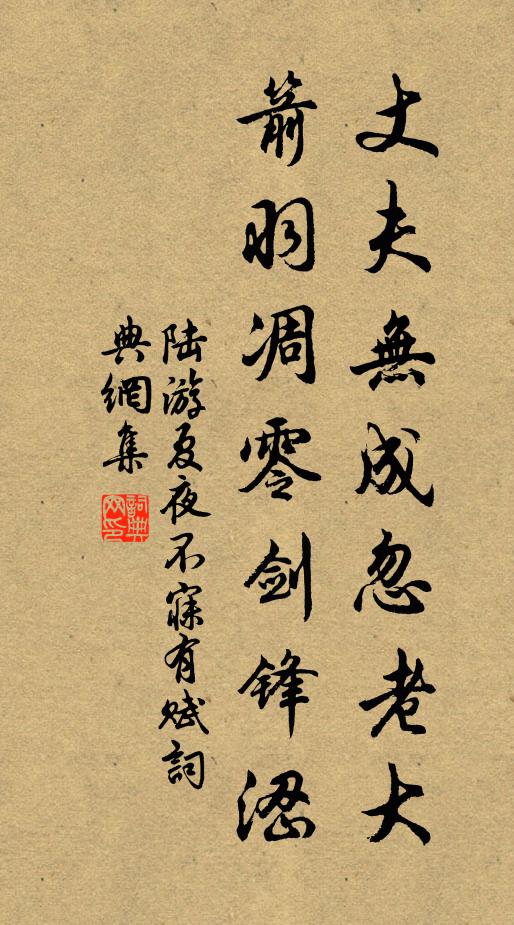 丈夫無成忽老大
箭羽凋零劍鋒澀
陆游夏夜不寐有赋詞
典網集
詞典
网印